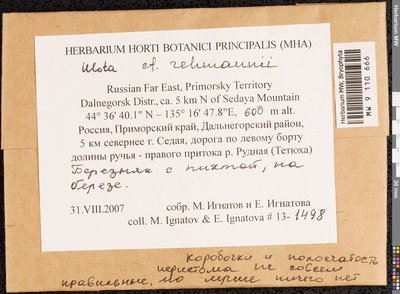 HERBARIUM HORTI BOTANICI PRINCIPALIS (MHA)
Ulota cf. rehmannii
Russian Far East, Primorsky Territory
Dalnegorsk Distr., ca. 5 km N of Sedaya Mountain
44° 36' 40.1" N – 135° 16' 47.8"E, 600 m alt.
Россия, Приморский край, Дальнегорский район,
5 км севернее г. Седая, дорога по левому борту
долины ручья - правого притока р. Рудная (Тетюха)
Березняк с пихтой, на
березе.
31.VIII.2007 собр. М. Игнатов и Е. Игнатова
coll. M. Ignatov & E. Ignatova # 13-1498
Коробочки и полосчатость
перистома не совсем
правильные, но лучше ничего нет
Herbarium MW, Bryophyta
MW 9 110 666
Herbarium MW
30 mm